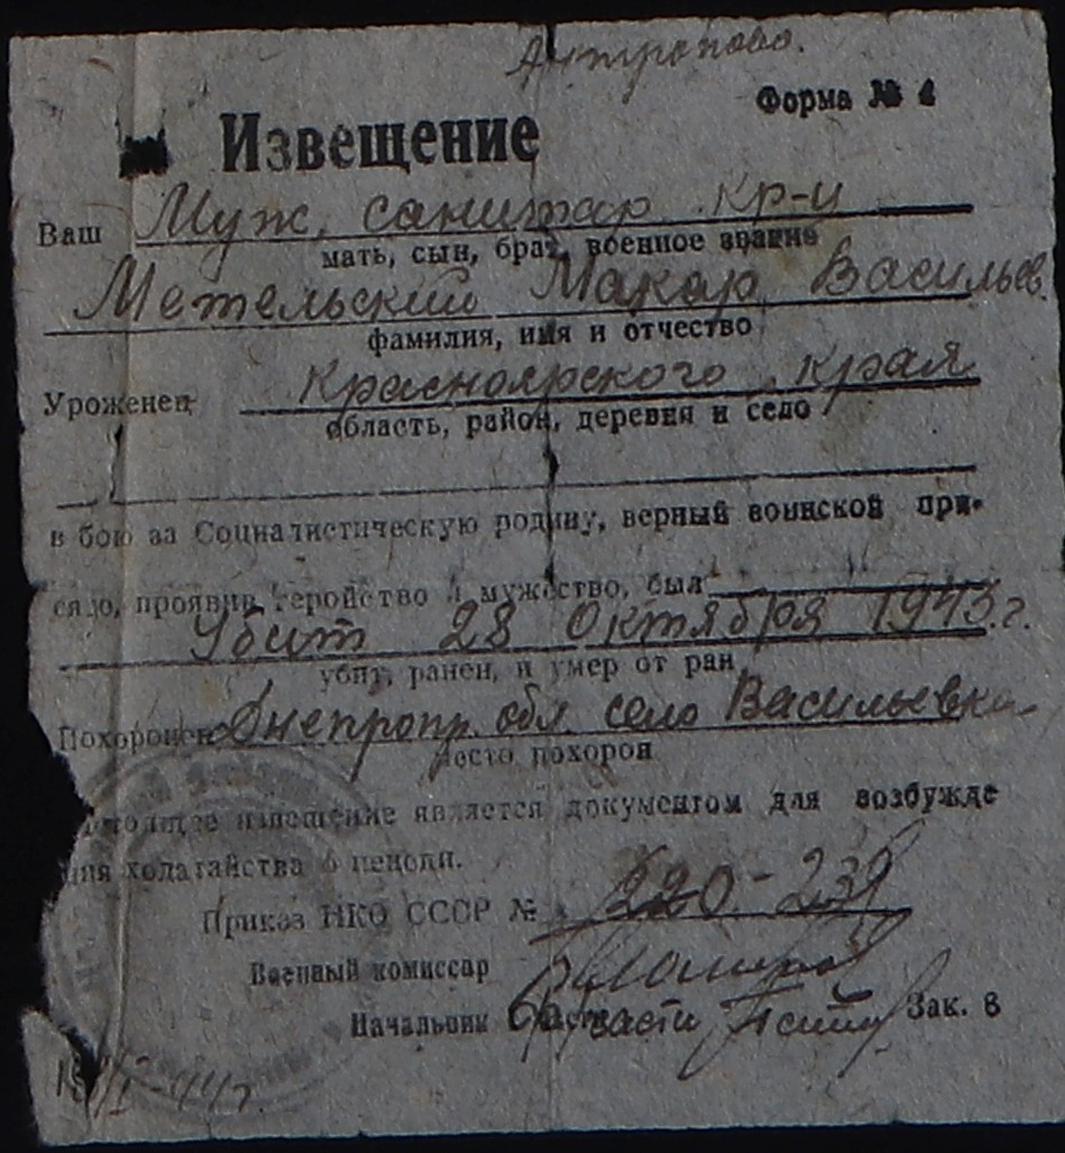 Антропово.
Форма № 4
Извещение
Ваш Муж, санитар кр-ц
мать, сын, брат, военное звание
Метельский Макар Васильев.
фамилия, имя и отчество
Уроженец Красноярского края
область, район, деревня и село
в бою за Социалистическую родину, верный воинской при-
сяге, проявив геройство и мужество, был
Убит 28 Октября 1943 г.
убит, ранен, и умер от ран
Похоронен Днепропр. обл. село Васильевка
место похорон
настоящее извещение является документом для возбужде
ния ходатайства о пенсии.
Приказ НКО СССР № 220-239
Военный комиссар
Начальник части Зак. 8
-44 г.